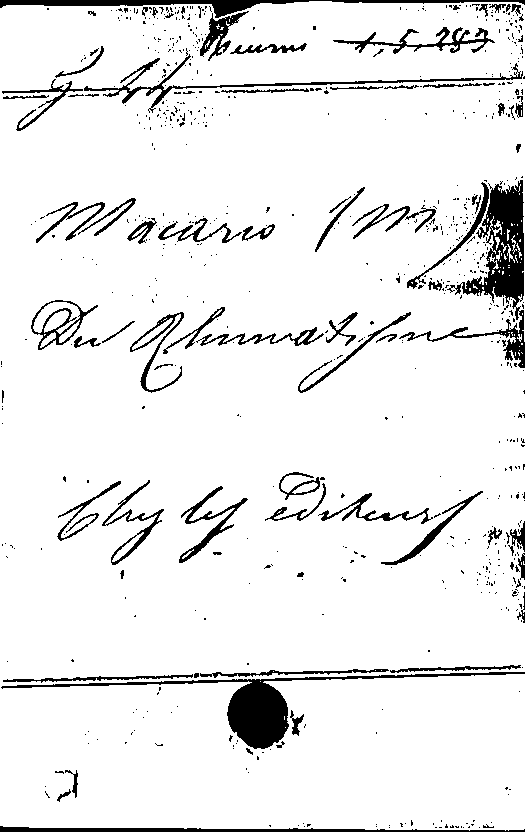 1,5,283
Macario (M)
Du Rhumatisme
Chez les éditeurs